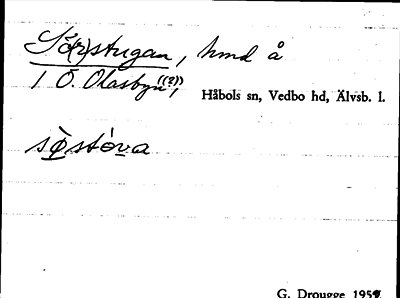 Sö(r)stugan, hmd å
1 Ö. Olasbyn((?)),
Håbols sn, Vedbo hd, Älvsb. l.
sø̀stóva
G. Drougge 1959.